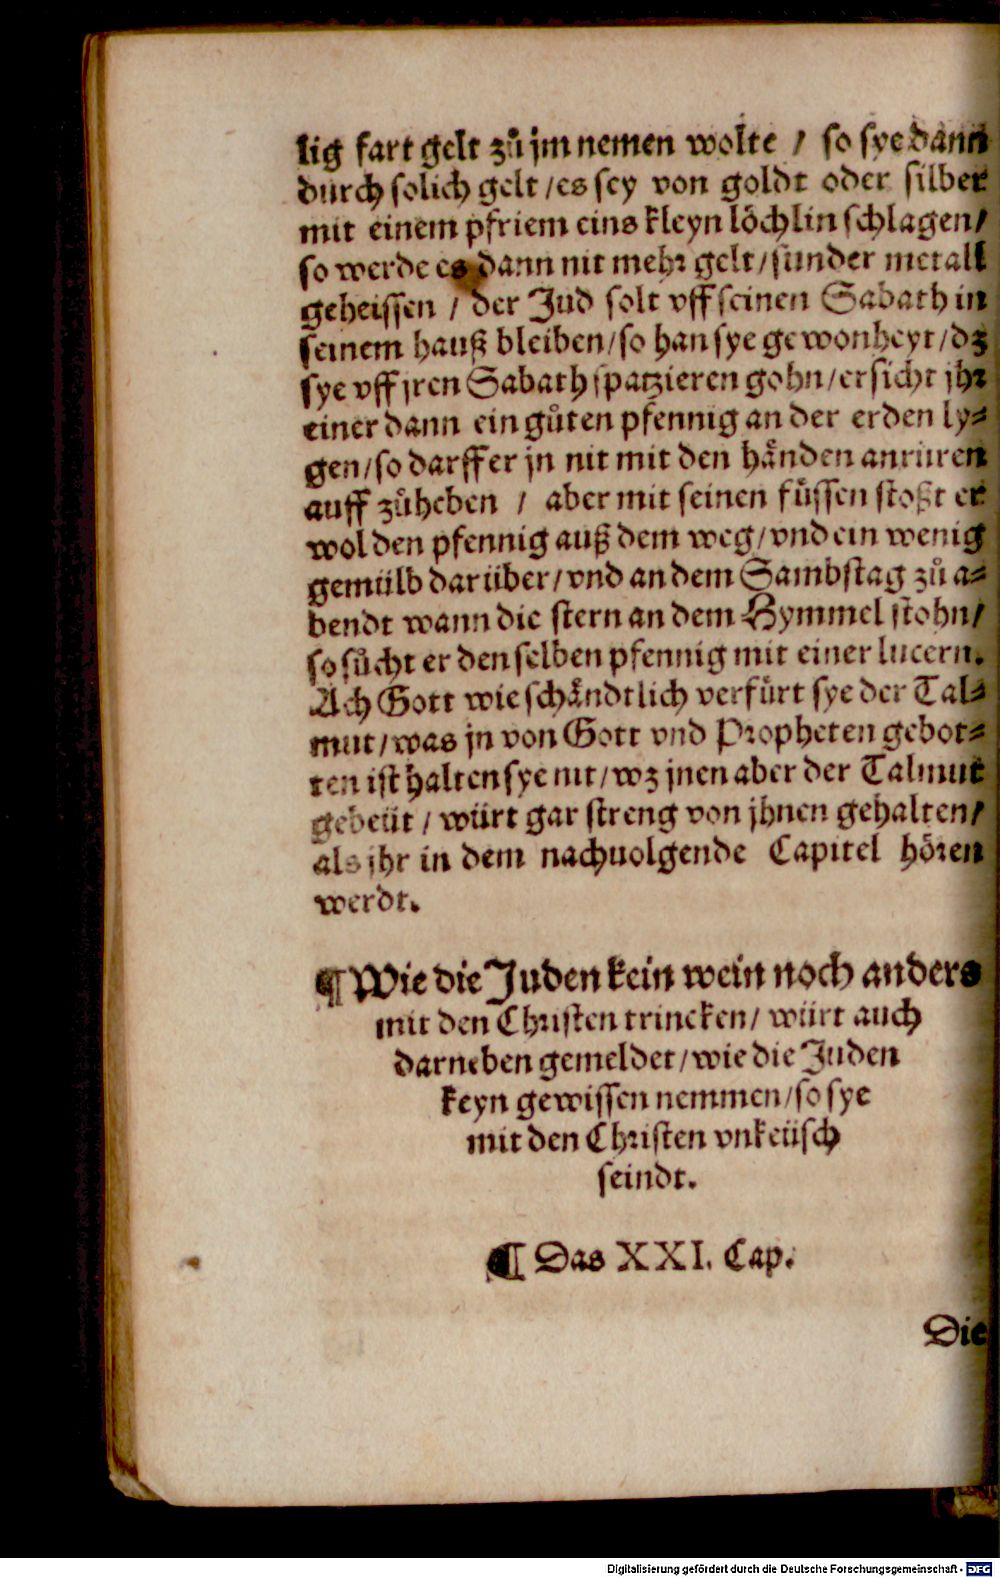 lig fart gelt zů jm nemen wolte / so sye dann
durch solich gelt / es sey von goldt oder silber
mit einem pfriem eins kleyn löchlin schlagen /
so werde es dann nit mehr gelt / sunder metall
geheissen / der Jud solt vff seinen Sabath in
seinem hauß bleiben / so han sye gewonheyt / dz
sye vff jren Sabath spatzieren gohn / ersicht jhr
einer dann ein gůten pfennig an der erden ly⸗
gen / so darff er jn nit mit den händen anrüren
auff zůheben / aber mit seinen füssen stoßt er
wol den pfennig auß dem weg / vnd ein wenig
gemülb darüber / vnd an dem Sambstag zů a⸗
bendt wann die stern an dem Hymmel stohn /
so sůcht er den selben pfennig mit einer lucern.
Ach Gott wie schändtlich verfürt sye der Tal⸗
mut / was jn von Gott vnd Propheten gebot⸗
ten ist halten sye nit / wz jnen aber der Talmut
gebeüt / würt gar streng von jhnen gehalten /
als jhr in dem nachuolgende Capitel hören
werdt.
¶ Wie die Juden kein wein noch anders
mit den Christen trincken / würt auch
darneben gemeldet / wie die Juden
keyn gewissen nemmen / so sye
mit den Christen vnkeüsch
seindt.
¶ Das XXI. Cap.
Die
Digitalisierung gefördert durch die Deutsche Forschungsgemeinschaft - DFG